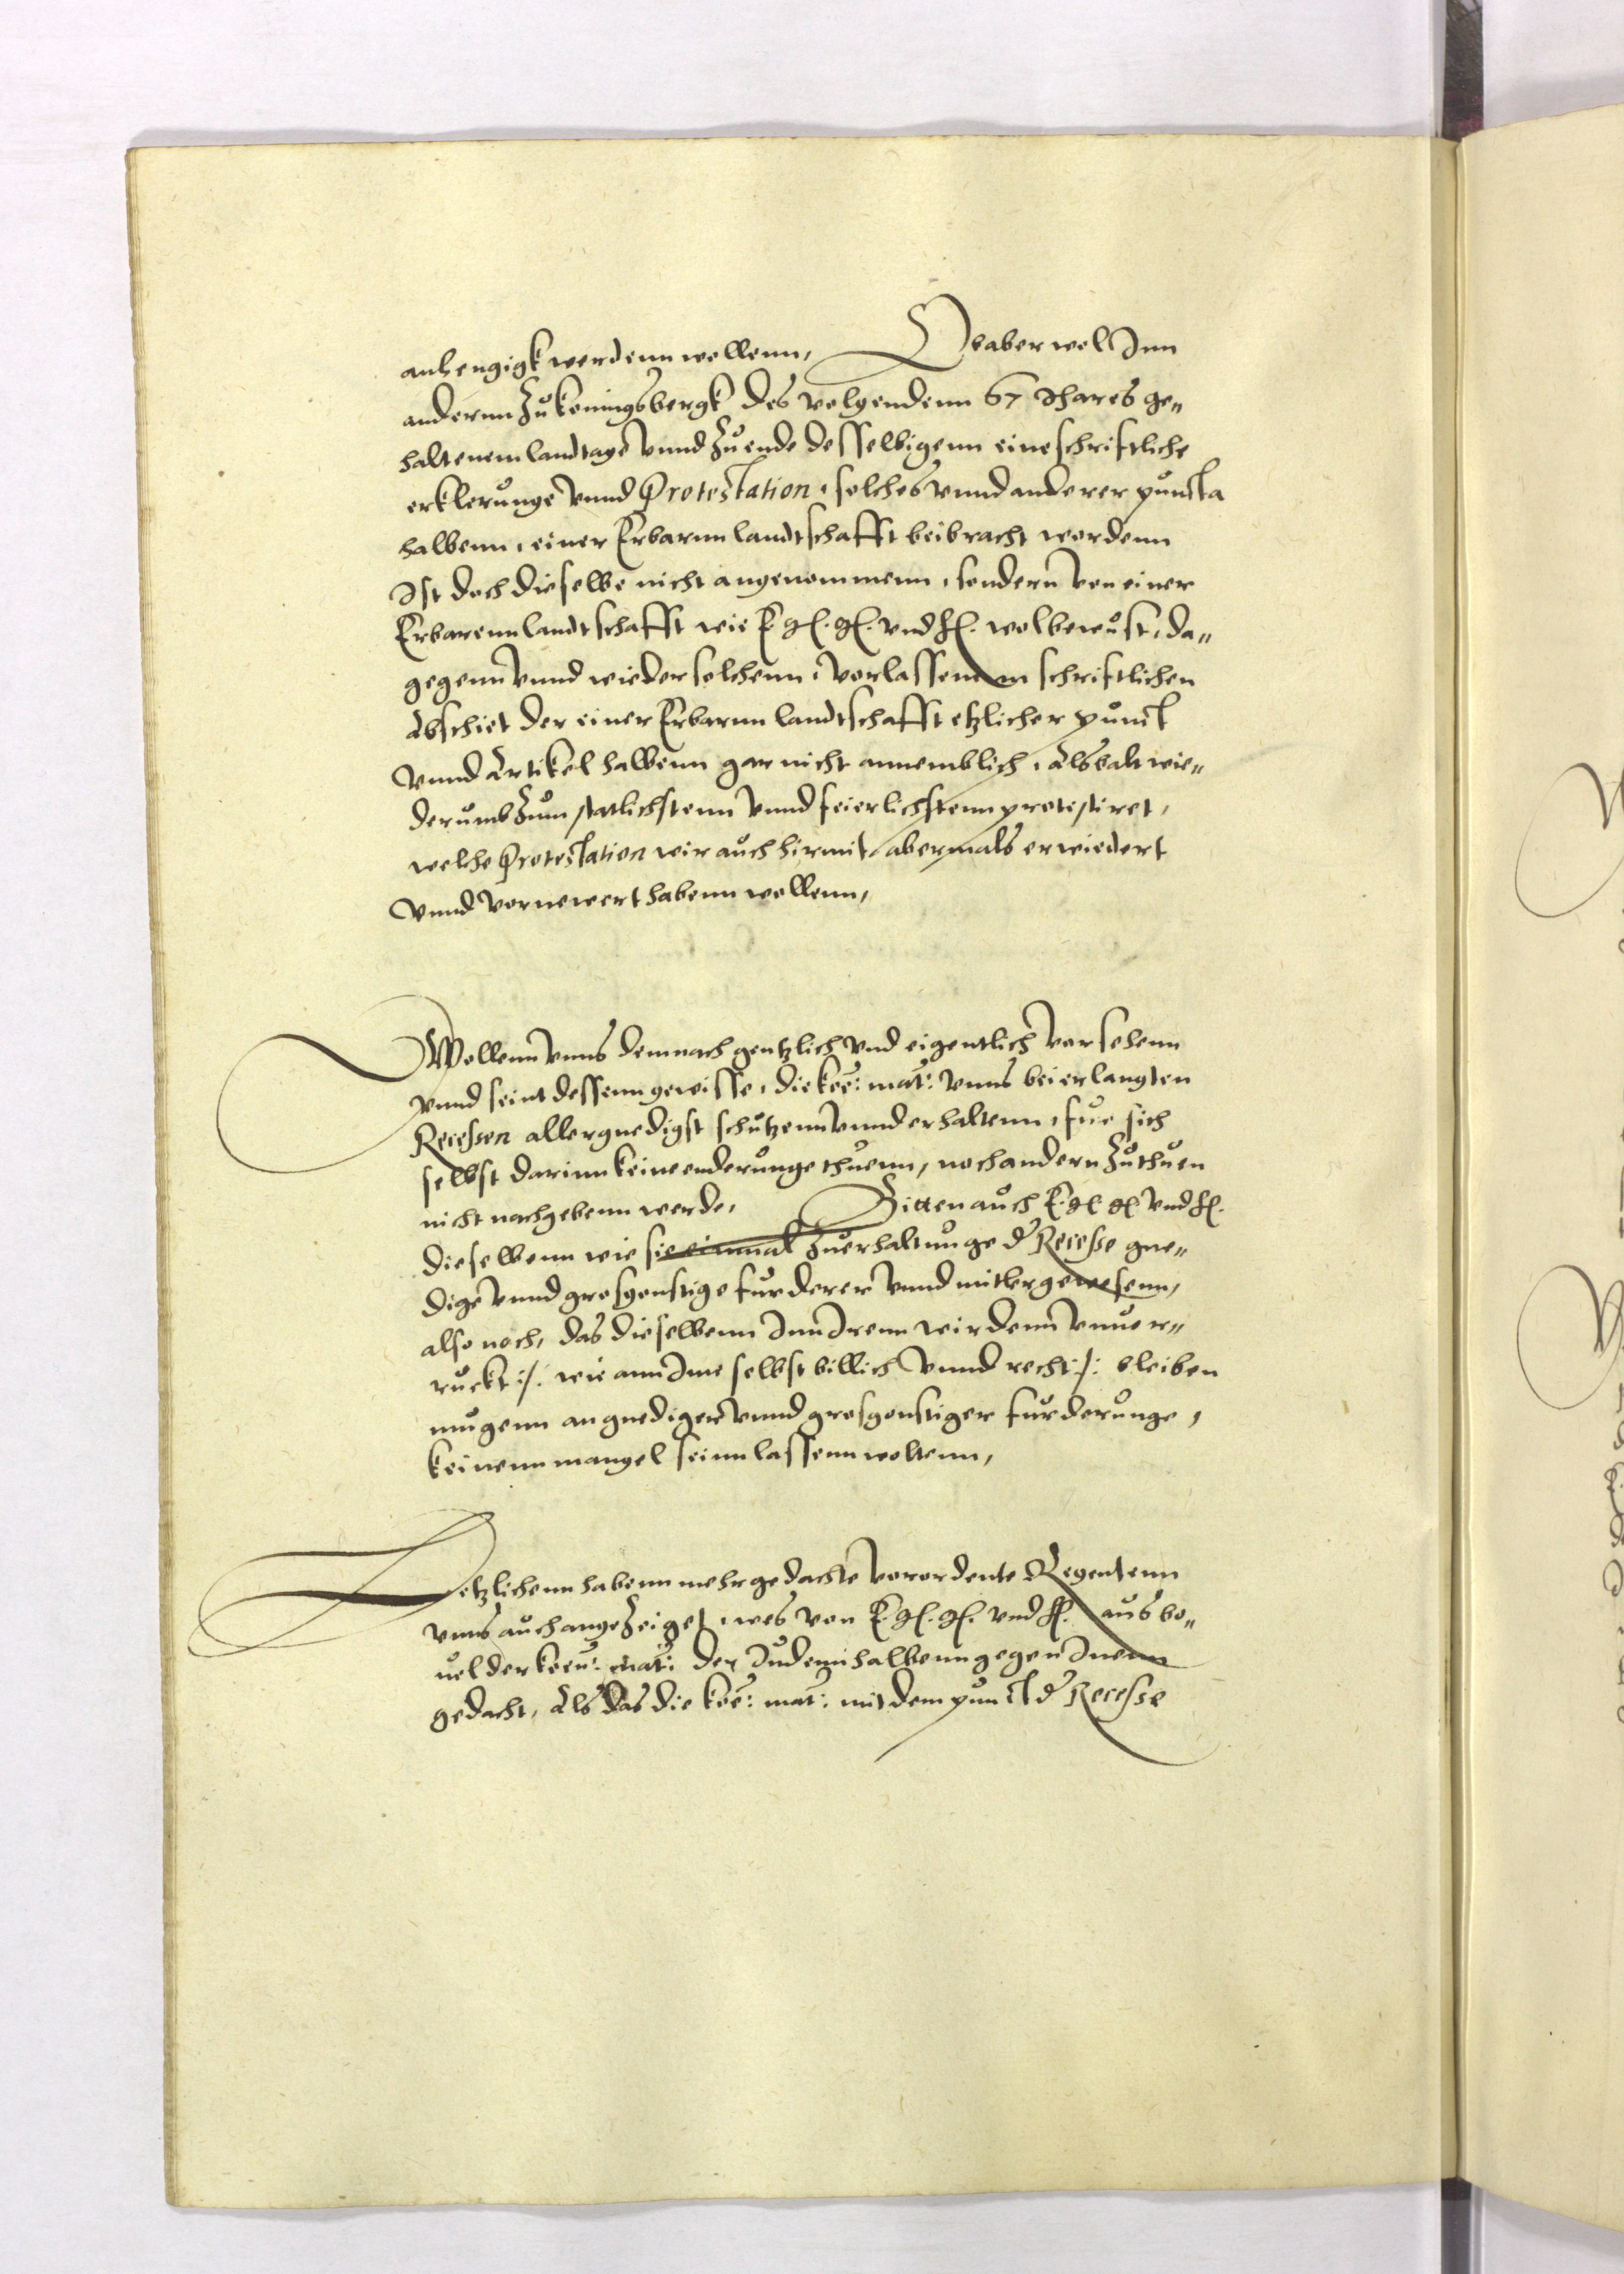 anhengigk werdenn wollenn, Ob aber wol Inn
andernn zu konningsbergk des volgendenn 67 Ihares ge„
haltenem landtage vnnd zu ende desselbigenn eine schriftliche
erklerunge vnnd Protestation, solches vnnd anderer puncta
halbenn, einer Erbarnn landtschafft beibracht wordenn
Ist doch dieselbe nicht angenommenn, sondern von einer
Erbarenn landtschafft wie E gl. gl. vnd hl. wol bewust, da„
gegenn vnnd wieder solchenn, vorlassenenn schriftlichen
Abschiet der einer Erbarnn landtschafft etzlicher punct
vnnd Artikel halbenn gar nicht annemblich, Alsbalt wie„
derumb zum statlichstenn vnnd feierlichstenn protestiret,
welche Protestation wir auch hirmit abermals erwiedert
vnnd vornewert habenn wollenn,
Wollenn vnns demnach gentzlich vnd eigentlich vorsehenn
vnnd seint dessenn gewisse, die kö: mat: vnns bei erlangten
Recessen allergnedigst schutzenn vnnd erhaltenn, fur sich
selbst darinn keine enderunge thuenn, noch andern zu thuen
nicht nachgebenn werde, Bitten auch E. gl gl vnd hl.
dieselbenn wie sie einmal zu erhaltunge d Recesse gne„
dige vnnd grosgonstige furderer vnnd mitler gewesenn,
also noch, das dieselbenn Inn Irenn wirdenn vnuor„
ruckt :/: wie ann Ime selbst billich vnnd recht :/: bleiben
mugenn an gnediger vnnd grosgonstiger furderunge,
keinenn mangel seinn lassenn woltenn,
Letzlichenn habenn mehrgedachte vorordente Regentenn
vnns auch angezeiget, wes von E. gl. gl. vnd hl. aus be„
uel der kön: mat: der Judenn halbenn gegen Inenn
gedacht, Als das die kö: mat: mit dem punct d Recesse